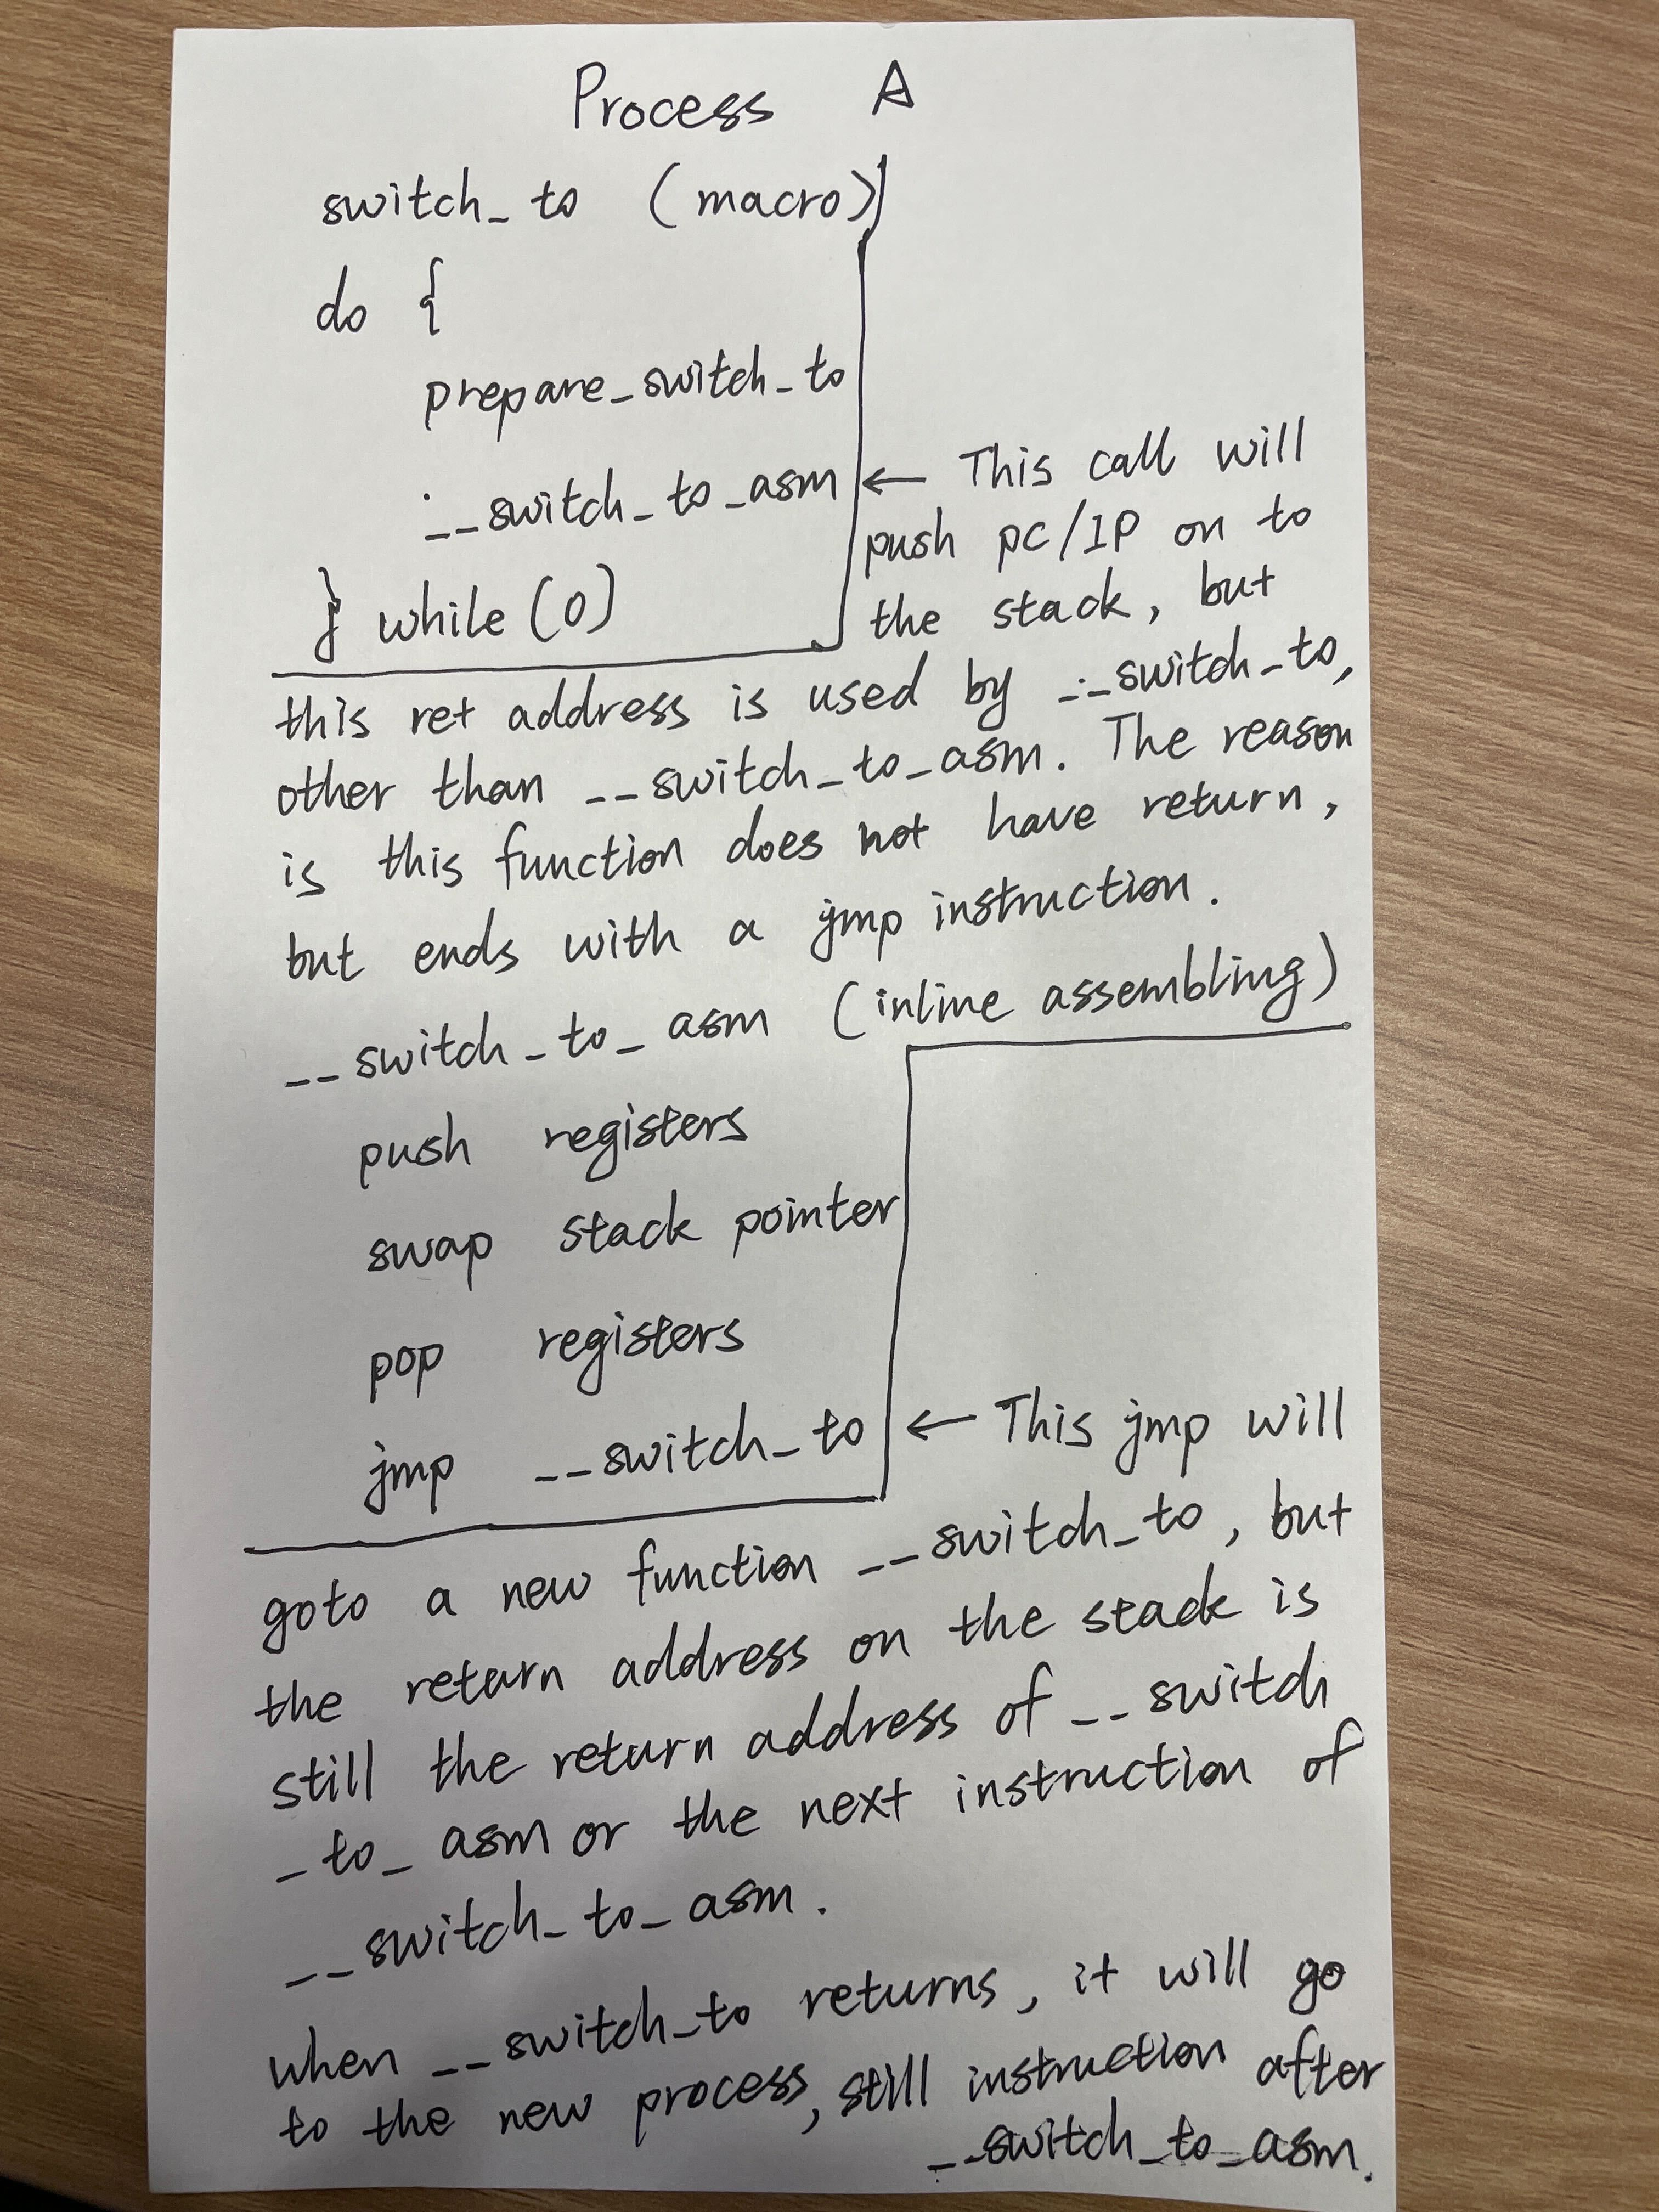 Process A
switch_to (macro)
do {
prepare_switch_to
__switch_to_asm ← This call will
push pc/IP on to
} while(0) the stack, but
this ret address is used by __switch_to,
other than __switch_to_asm. The reason
is this function does not have return,
but ends with a jmp instruction.
__switch_to_asm (inline assembling)
push registers
swap stack pointer
pop registers
jmp __switch_to ← This jmp will
goto a new function __switch_to, but
the return address on the stack is
still the return address of __switch
_to_asm or the next instruction of
__switch_to_asm.
when __switch_to returns, it will go
to the new process, still instruction after
__switch_to_asm.